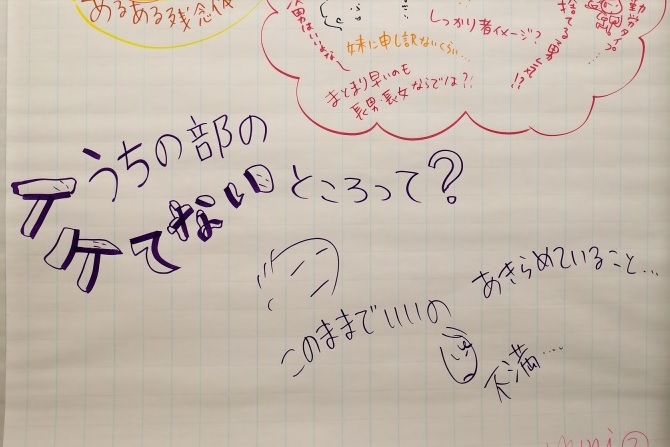 あるある残念
しっかり者イメージ?
妹に申し訳ないくらい…
まとまり早いのも
長男・長女ならでは?!
うちの部の
イケてないところって?
あきらめていること…
このままでいいの
不満…
mini②